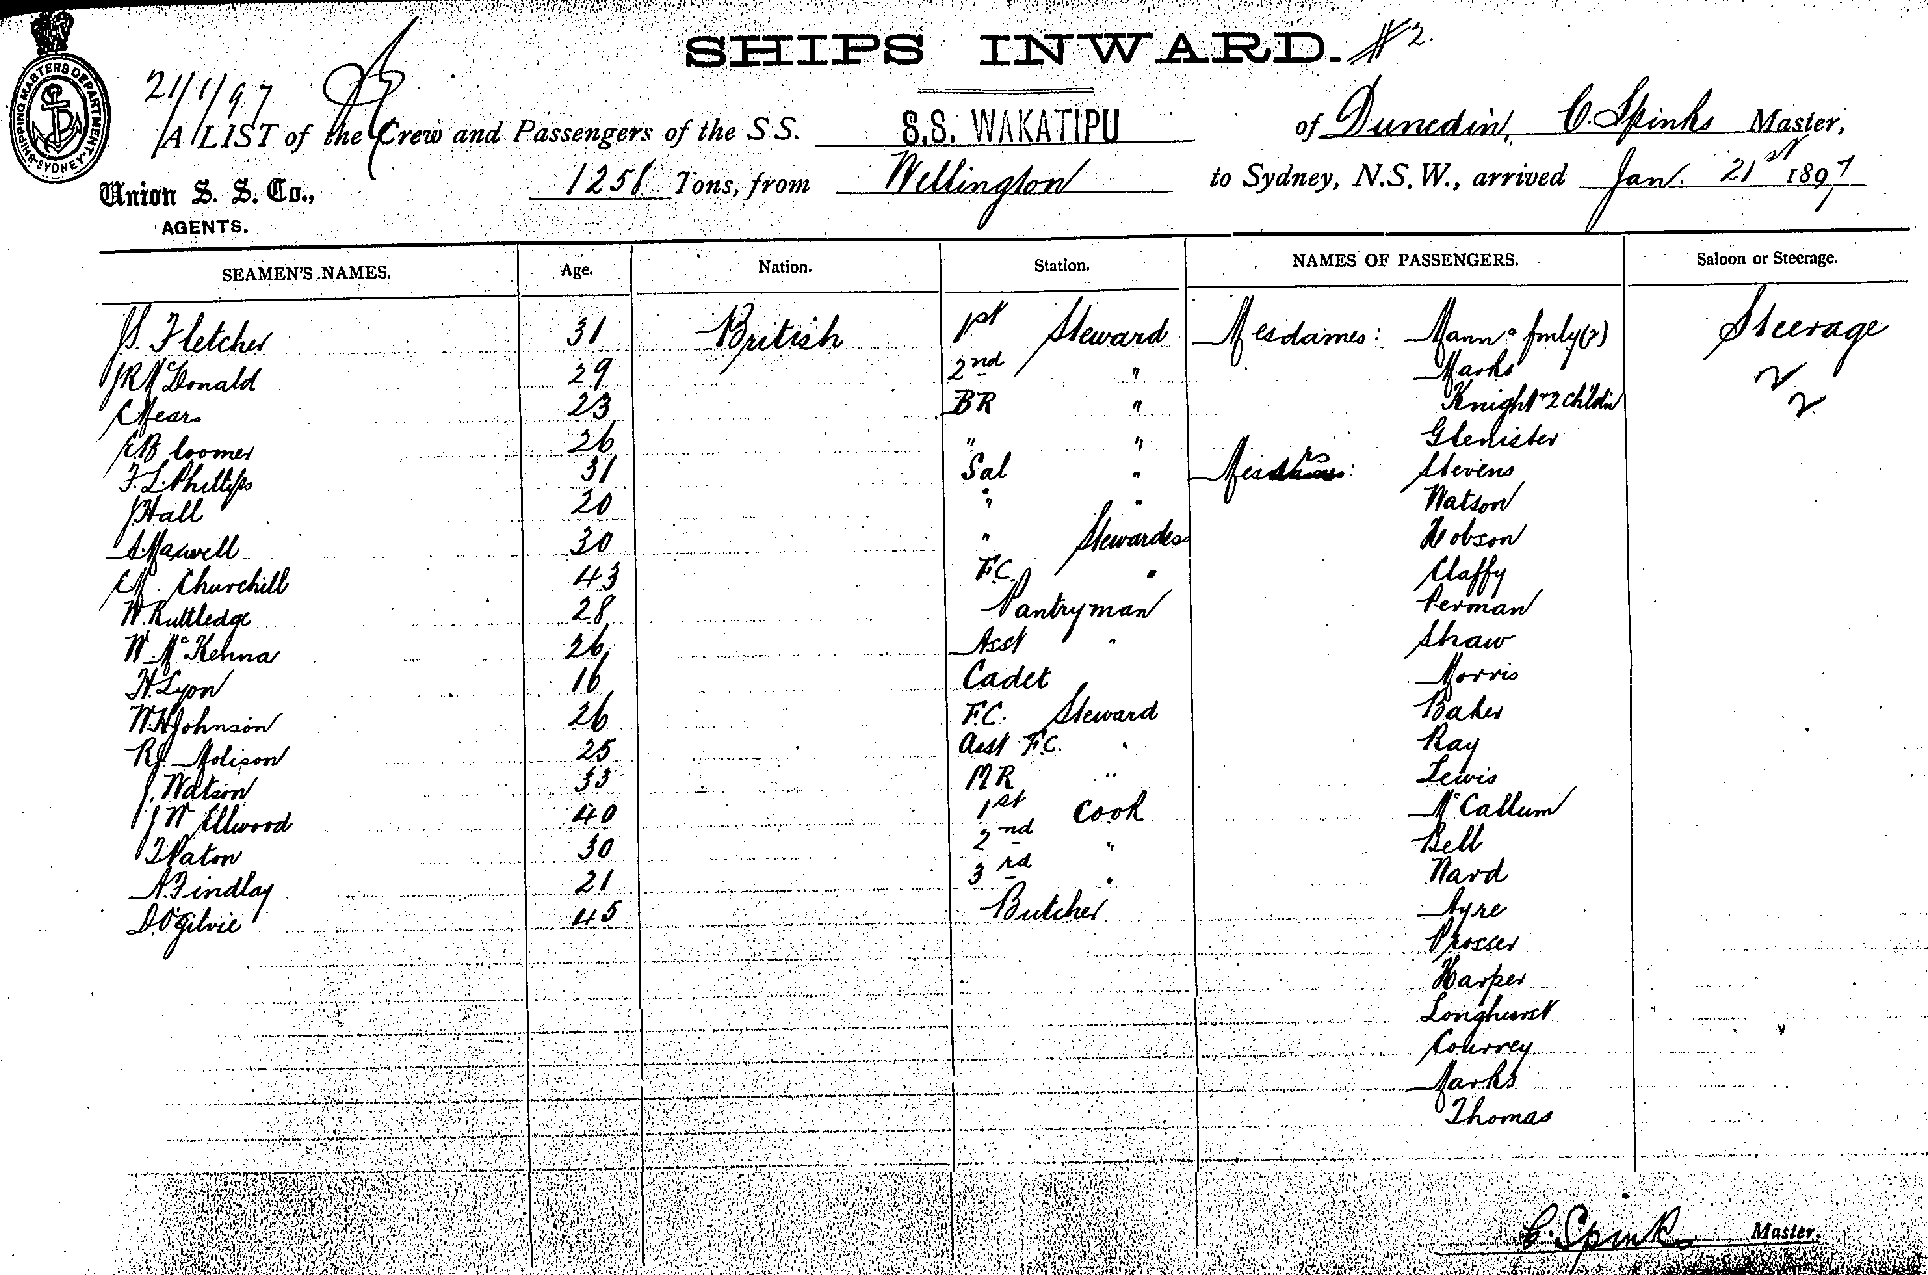 SHIPS INWARD. #2.
SHIPPING MASTERS DEPARTMENT SYDNEY
21/1/97
A LIST of the Crew and Passengers of the S S. S.S. WAKATIPU of Dunedin, C Spinks Master,
Union S. S. Co., 1258 Tons, from Wellington to Sydney, N.S.W., arrived Jan. 21st 1897
AGENTS.
SEAMEN'S NAMES. Age. Nation. Station. NAMES OF PASSENGERS. Saloon or Steerage.
JS. Fletcher 31 British 1st Steward Mesdames: Mann & fmly(3) Steerage
JR McDonald 29 2nd " Marks
C Mears 23 BR " Knight & 2 Childn
E Bloomer 26 " " Glenister
F.L. Phillips 31 Sal " Messrs: Stevens
J Hall 20 " " Watson
A Maxwell 30 " Stewardess Hobson
CM. Churchill 43 F.C. " Claffy
W. Ruttledge 28 Pantryman Perman
W. McKenna 26 Asst " Shaw
H. Lyon 16 Cadet Morris
W.H. Johnson 26 F.C. Steward Baker
RJ. Molison 25 Asst F.C. " Ray
J. Watson 33 MR " Lewis
J W Ellwood 40 1st Cook McCallum
T Paton 30 2nd " Bell
A. Findlay 21 3rd " Ward
D. Ogilvie 45 Butcher Ayre
Prosser
Harper
Longhurst
Courrey
Marks
Thomas
C. Spinks Master.